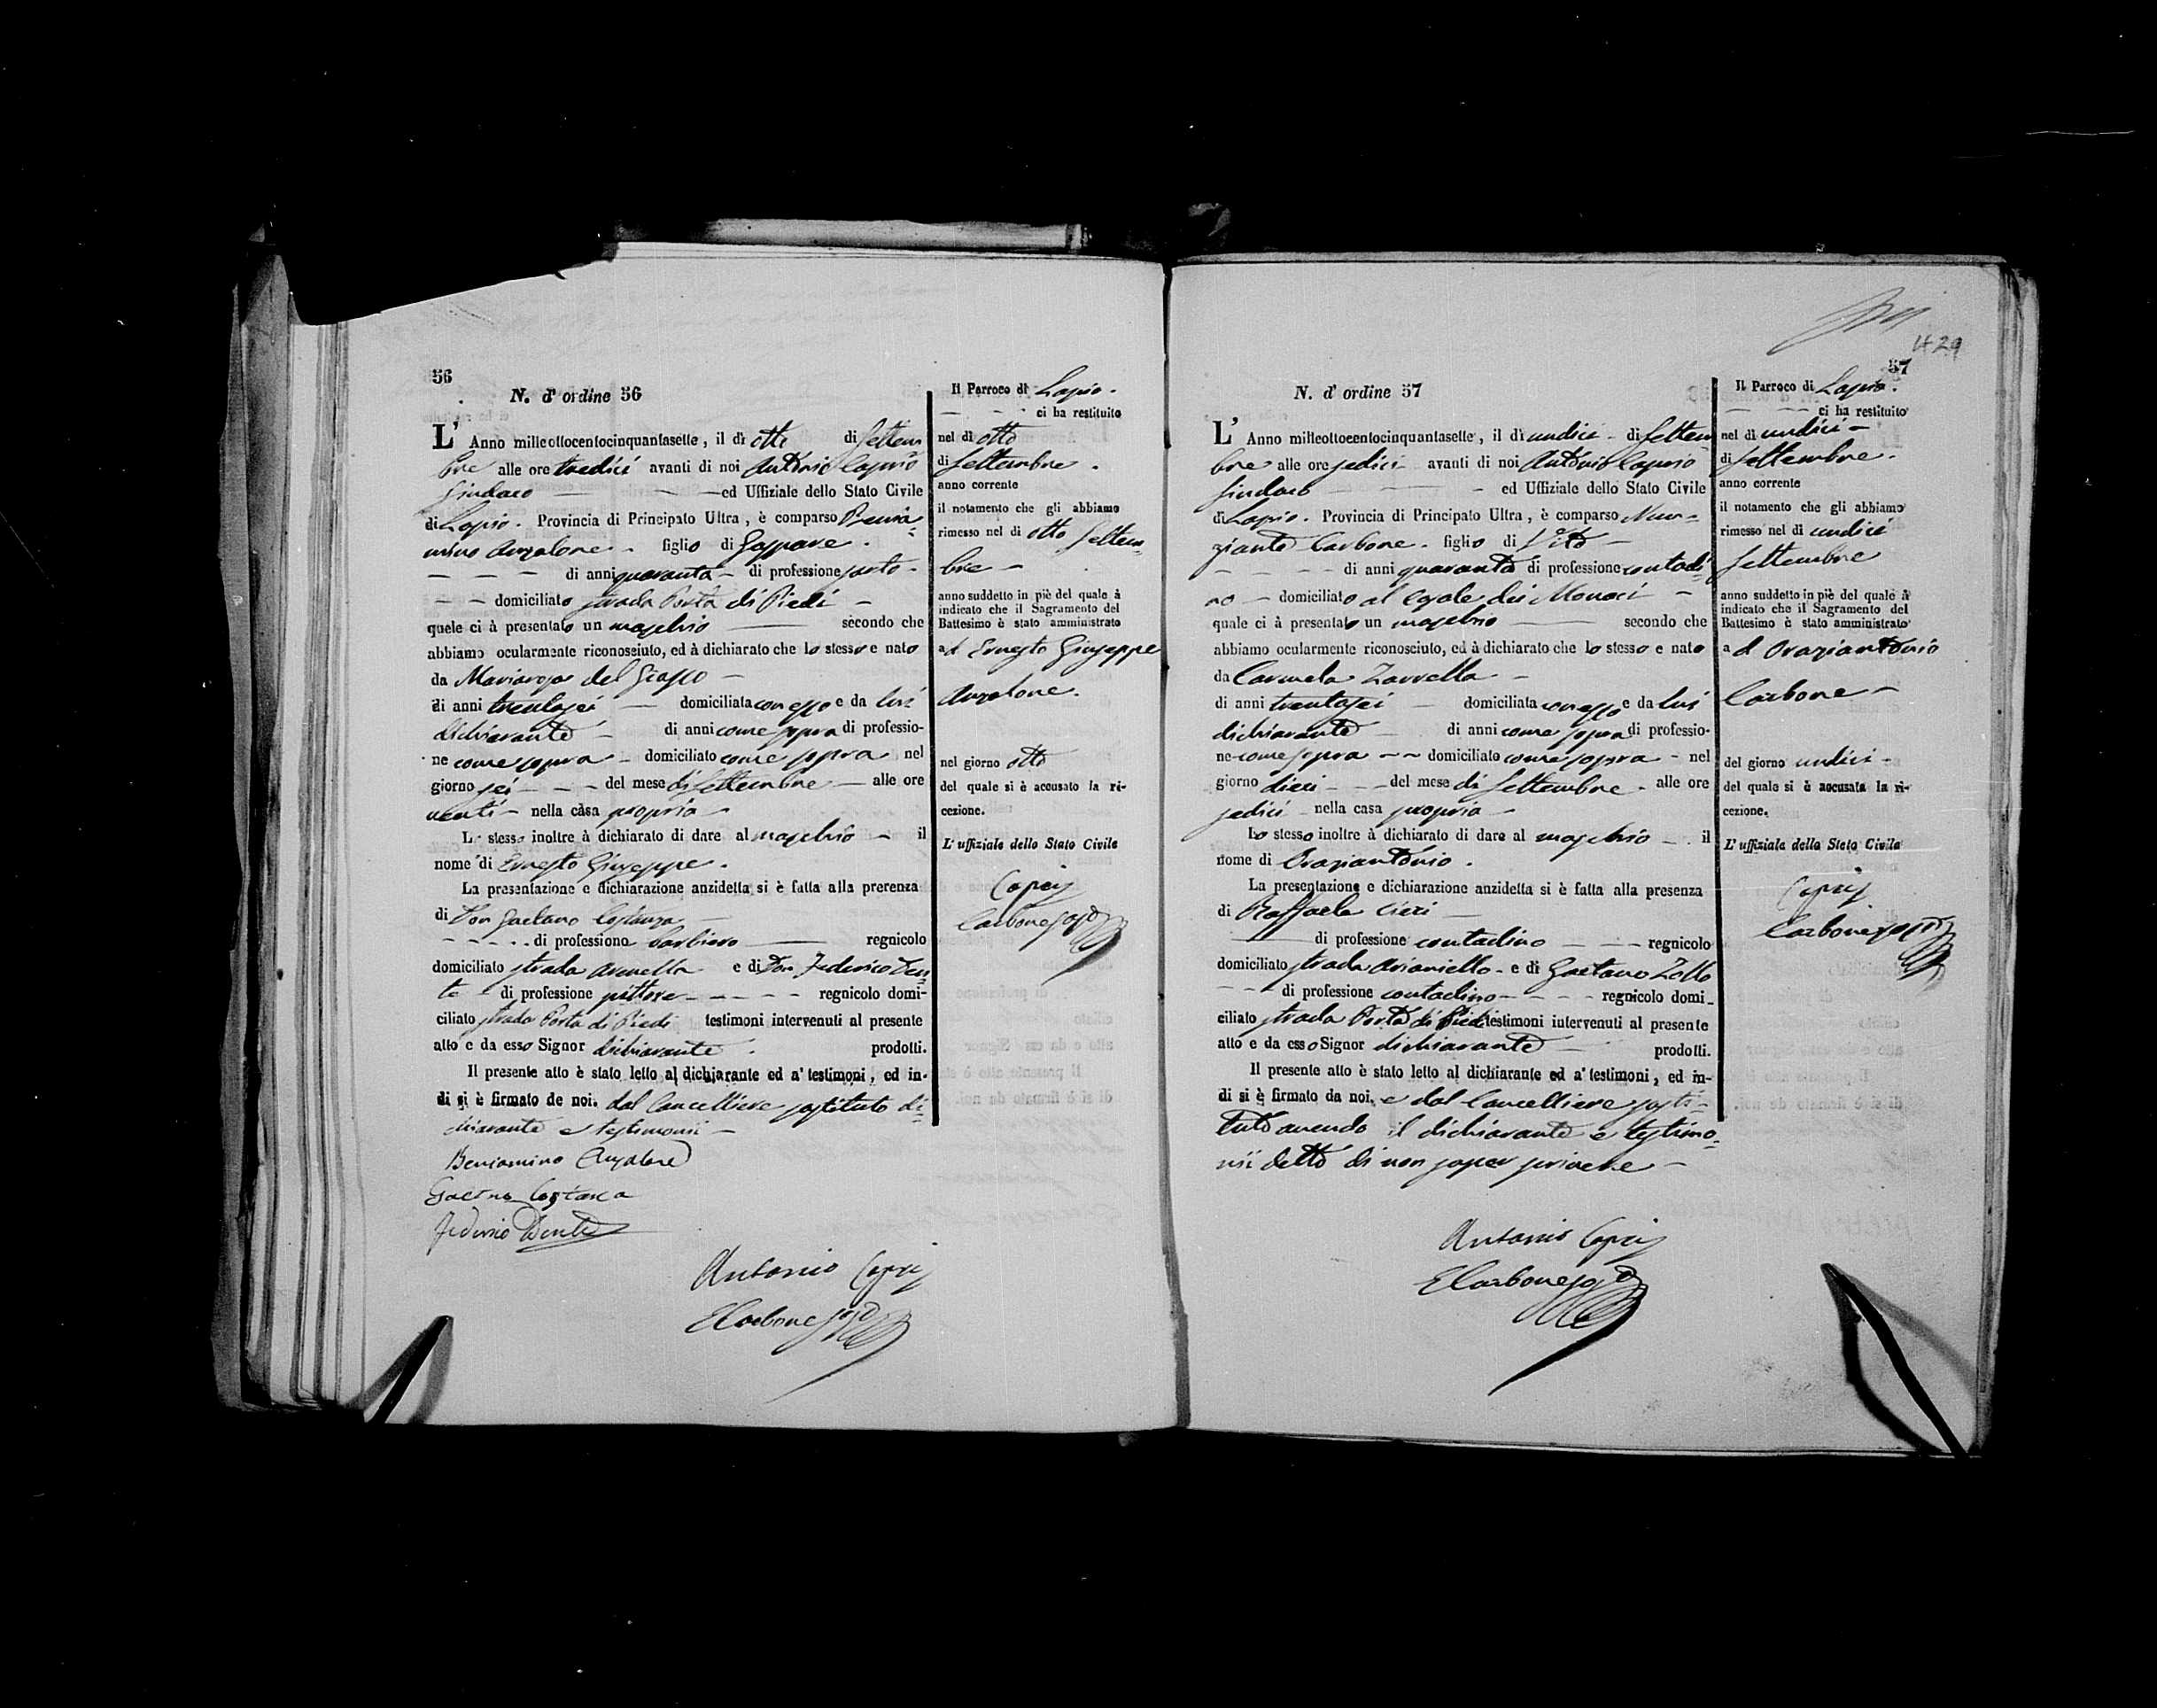 56
N. d' ordine 56
L' Anno milleottocentocinquantasette, il dì otto di Settem
bre alle ore tredici avanti di noi Antonio Caprio
Sindaco ed Uffiziale dello Stato Civile
di Lapio. Provincia di Principato Ultra, è comparso Benia=
mino Anzalone. figlio di Gaspare.
di anni quaranta di professione sarto
domiciliato strada Porta di Piedi
quele ci à presentato un maschio secondo che
abbiamo ocularmente riconosciuto, ed à dichiarato che lo stesso e nato
da Mariarosa del Grosso
di anni trentasei domiciliata con esso e da lui
dichiarante di anni come sopra di professio-
ne come sopra domiciliato come sopra nel
giorno sei del mese di Settembre alle ore
venti nella casa propria
L stesso inoltre à dichiarato di dare al maschio il
nome di Ernesto Giuseppe.
La presentazione e dichiarazione anzidetta si è fatta alla prerenza
di Don Gaetano Costanza
di professione barbiero regnicolo
domiciliato strada Avenella e di Don Federico Den=
te di professione pittore regnicolo domi-
ciliato strada Porta di Piedi testimoni intervenuti al presente
atto e da esso Signor dichiarante. prodotti.
Il presente atto è stato letto al dichiarante ed a' testimoni, ed in-
di si è firmato de noi. dal Cancelliere sostituto di=
chiarante e testimonii
Beniamino Anzalone
Gaetano Costanza
Federico Dente
Antonio Caprio
Carbone
Il Parroco di Lapio.
ci ha restituito
nel dì otto
di Settembre.
anno corrente
il notamento che gli abbiamo
rimesso nel di otto Settem=
bre
anno suddetto in piè del quale à
indicato che il Sagramento del
Battesimo è stato amministrato
ad Ernesto Giuseppe
Anzalone.
nel giorno otto
del quale si è accusato la ri-
cezione.
L' uffiziale dello Stato Civile
Caprio
Carbone
429
57
N. d' ordine 57
L' Anno milleottocentocinquantasette, il dì undici di Settem
bre alle ore sedici avanti di noi Antonio Caprio
Sindaco ed Uffiziale dello Stato Civile
di Lapio. Provincia di Principato Ultra, è comparso Nun=
ziante Carbone. figlio di Vito
di anni quaranta di professione contadi=
no domiciliato al Casale dei Monaci
quale ci à presentato un maschio secondo che
abbiamo ocularmente riconosciuto, ed à dichiarato che lo stesso e nato
da Carmela Zarrella
di anni trentasei domiciliata con esso e da lui
dichiarante di anni come sopra di professio-
ne come sopra domiciliato come sopra nel
giorno dieci del mese di Settembre alle ore
sedici nella casa propria
Lo stesso inoltre à dichiarato di dare al maschio il
nome di Oraziantonio.
La presentazione e dichiarazione anzidetta si è fatta alla presenza
di Raffaele Cieri
di professione contadino regnicolo
domiciliato strada Arianiello e di Gaetano Zollo
di professione contadino regnicolo domi-
ciliato strada Porta di Piedi testimoni intervenuti al presente
atto e da esso Signor dichiarante prodotti.
Il presente atto è stato letto al dichiarante ed a' testimoni, ed in-
di si è firmato da noi. e dal Cancelliere sosti=
tuto avendo il dichiarante e testimo=
nii detto di non saper scrivere
Antonio Caprio
Carbone
Il Parroco di Lapio.
ci ha restituito
nel dì undici
di Settembre.
anno corrente
il notamento che gli abbiamo
rimesso nel dì undici
Settembre
anno suddetto in piè del quale à
indicato che il Sagramento del
Battesimo è stato amministrato
ad Oraziantonio
Carbone
del giorno undici
del quale si è accusata la ri-
cezione.
L' uffiziale dello Stato Civile
Caprio
Carbone